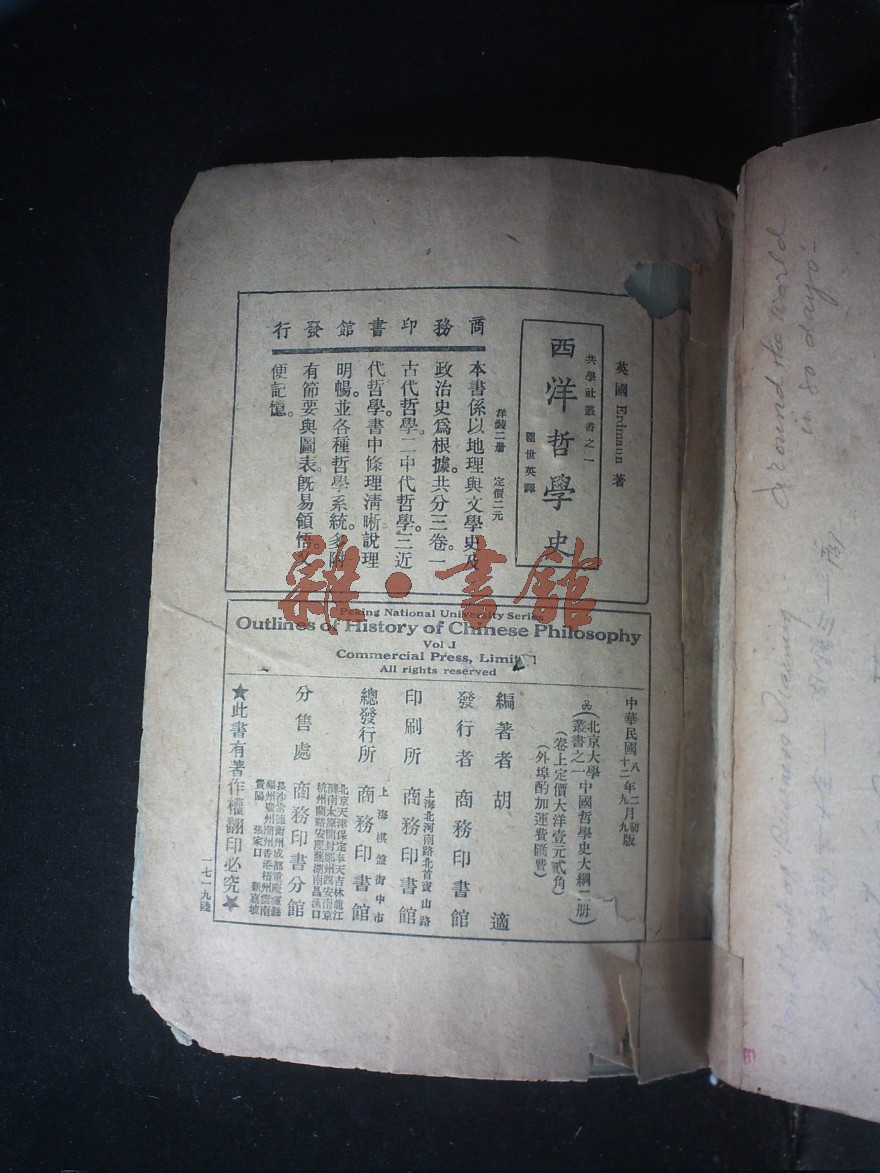 英國 Erdmann 著
共學社叢書之一
西洋哲學史
瞿世英譯
洋裝二册 定價二元
商務印書館發行
本書係以地理與文學史及
政治史爲根據。共分三卷。一
古代哲學。二中代哲學。三近
代哲學。書中條理清晰。說理
明暢。並各種哲學系統。多附
有節要與圖表。既易領悟。又
便記憶。
雜·書館
Peking National University Series
Outlines of History of Chinese Philosophy
Vol I
Commercial Press, Limit
All rights reserved
中華民國八年二月初版
十二年九月九版
北京大學叢書之一
中國哲學史大綱二册
(卷上定價大洋壹元貳角)
(外埠酌加運費匯費)
編著者 胡適
發行者 商務印書館
印刷所 上海北河南路北首寶山路 商務印書館
總發行所 上海棋盤街中市 商務印書館
分售處 商務印書分館
北京天津保定奉天吉林龍江
濟南太原開封鄭州西安南京
杭州蘭谿安慶蕪湖南昌漢口
長沙常德衡州成都重慶瀘縣
福州廣州潮州香港梧州雲南
貴陽 張家口 新嘉坡
★此書有著作權翻印必究★
一七一九陸
Around the World
in 80 days-